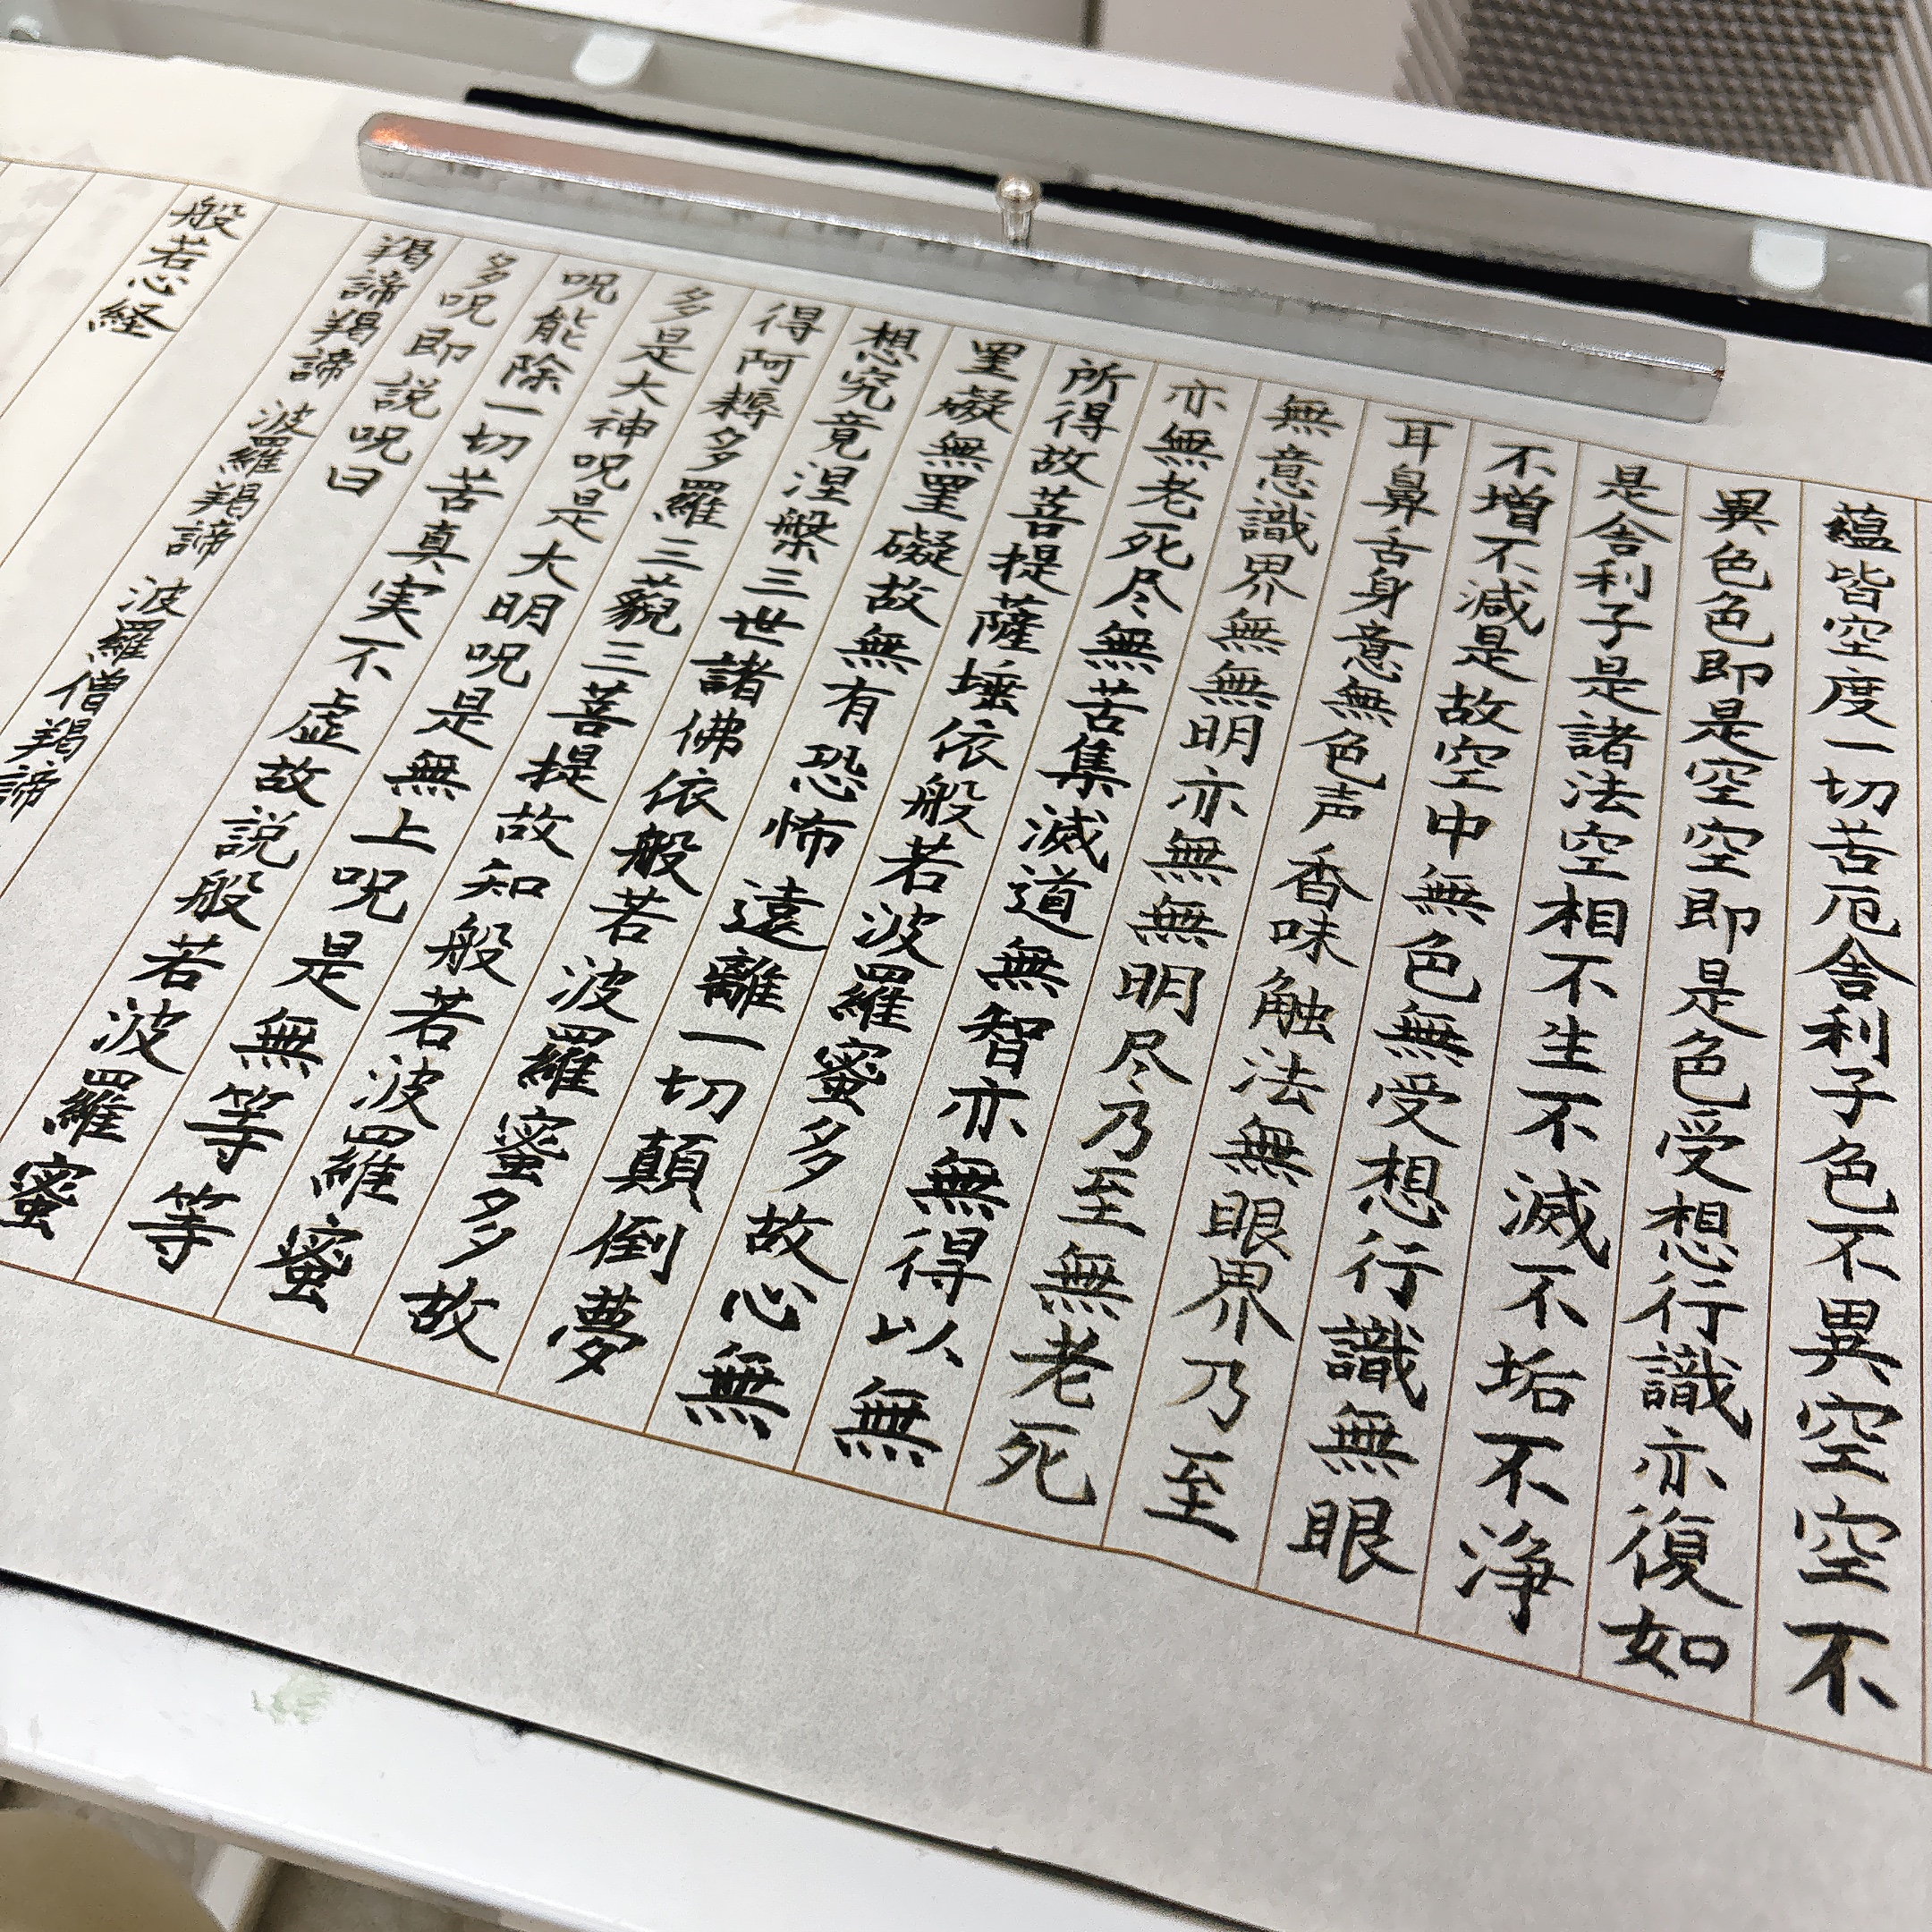 蘊皆空度一切苦厄舎利子色不異空空不
異色色即是空空即是色受想行識亦復如
是舎利子是諸法空相不生不滅不垢不浄
不増不減是故空中無色無受想行識無眼
耳鼻舌身意無色声香味触法無眼界乃至
無意識界無無明亦無無明尽乃至無老死
亦無老死尽無苦集滅道無智亦無得以無
所得故菩提薩埵依般若波羅蜜多故心無
罣礙無罣礙故無有恐怖遠離一切顛倒夢
想究竟涅槃三世諸佛依般若波羅蜜多故
得阿耨多羅三藐三菩提故知般若波羅蜜
多是大神呪是大明呪是無上呪是無等等
呪能除一切苦真実不虚故説般若波羅蜜
多呪即説呪曰
羯諦羯諦 波羅羯諦 波羅僧羯諦
般若心経